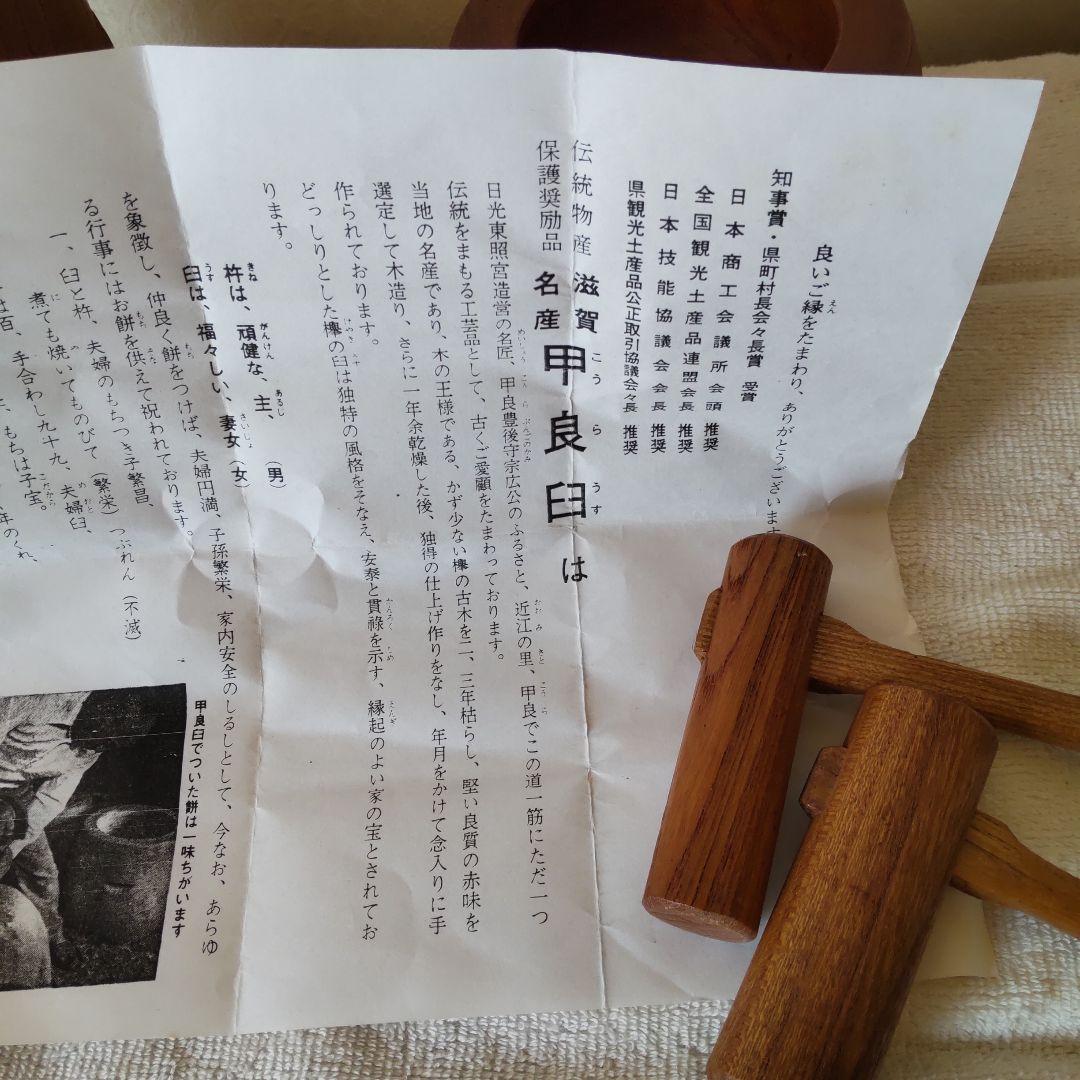 良いご縁をたまわり、ありがとうございます
知事賞・県町村長会々長賞 受賞
日本商工会議所会頭 推奨
全国観光土産品連盟会長 推奨
日本技能協議会会長 推奨
県観光土産品公正取引協議会々長 推奨
伝統物産 滋賀
保護奨励品 名産
甲良臼は
日光東照宮造営の名匠、甲良豊後守宗広公のふるさと、近江の里、甲良でこの道一筋にただ一つ
伝統をまもる工芸品として、古くご愛顧をたまわっております。
当地の名産であり、木の王様である、かず少ない欅の古木を二、三年枯らし、堅い良質の赤味を
選定して木造り、さらに一年余乾燥した後、独得の仕上げ作りをなし、年月をかけて念入りに手
作られております。
どっしりとした欅の臼は独特の風格をそなえ、安泰と貫祿を示す、縁起のよい家の宝とされてお
ります。
杵は、頑健な、主、(男)
臼は、福々しい、妻女(女)
を象徴し、仲良く餅をつけば、夫婦円満、子孫繁栄、家内安全のしるしとして、今なお、あらゆ
る行事にはお餅を供えて祝われております。
一、臼と杵、夫婦のもちつき子繁昌、
煮ても焼いてものびて(繁栄)つぶれん(不滅)
は百、手合わし九十九、夫婦臼、
もちは子宝。
年のくれ、
甲良臼でついた餅は一味ちがいます